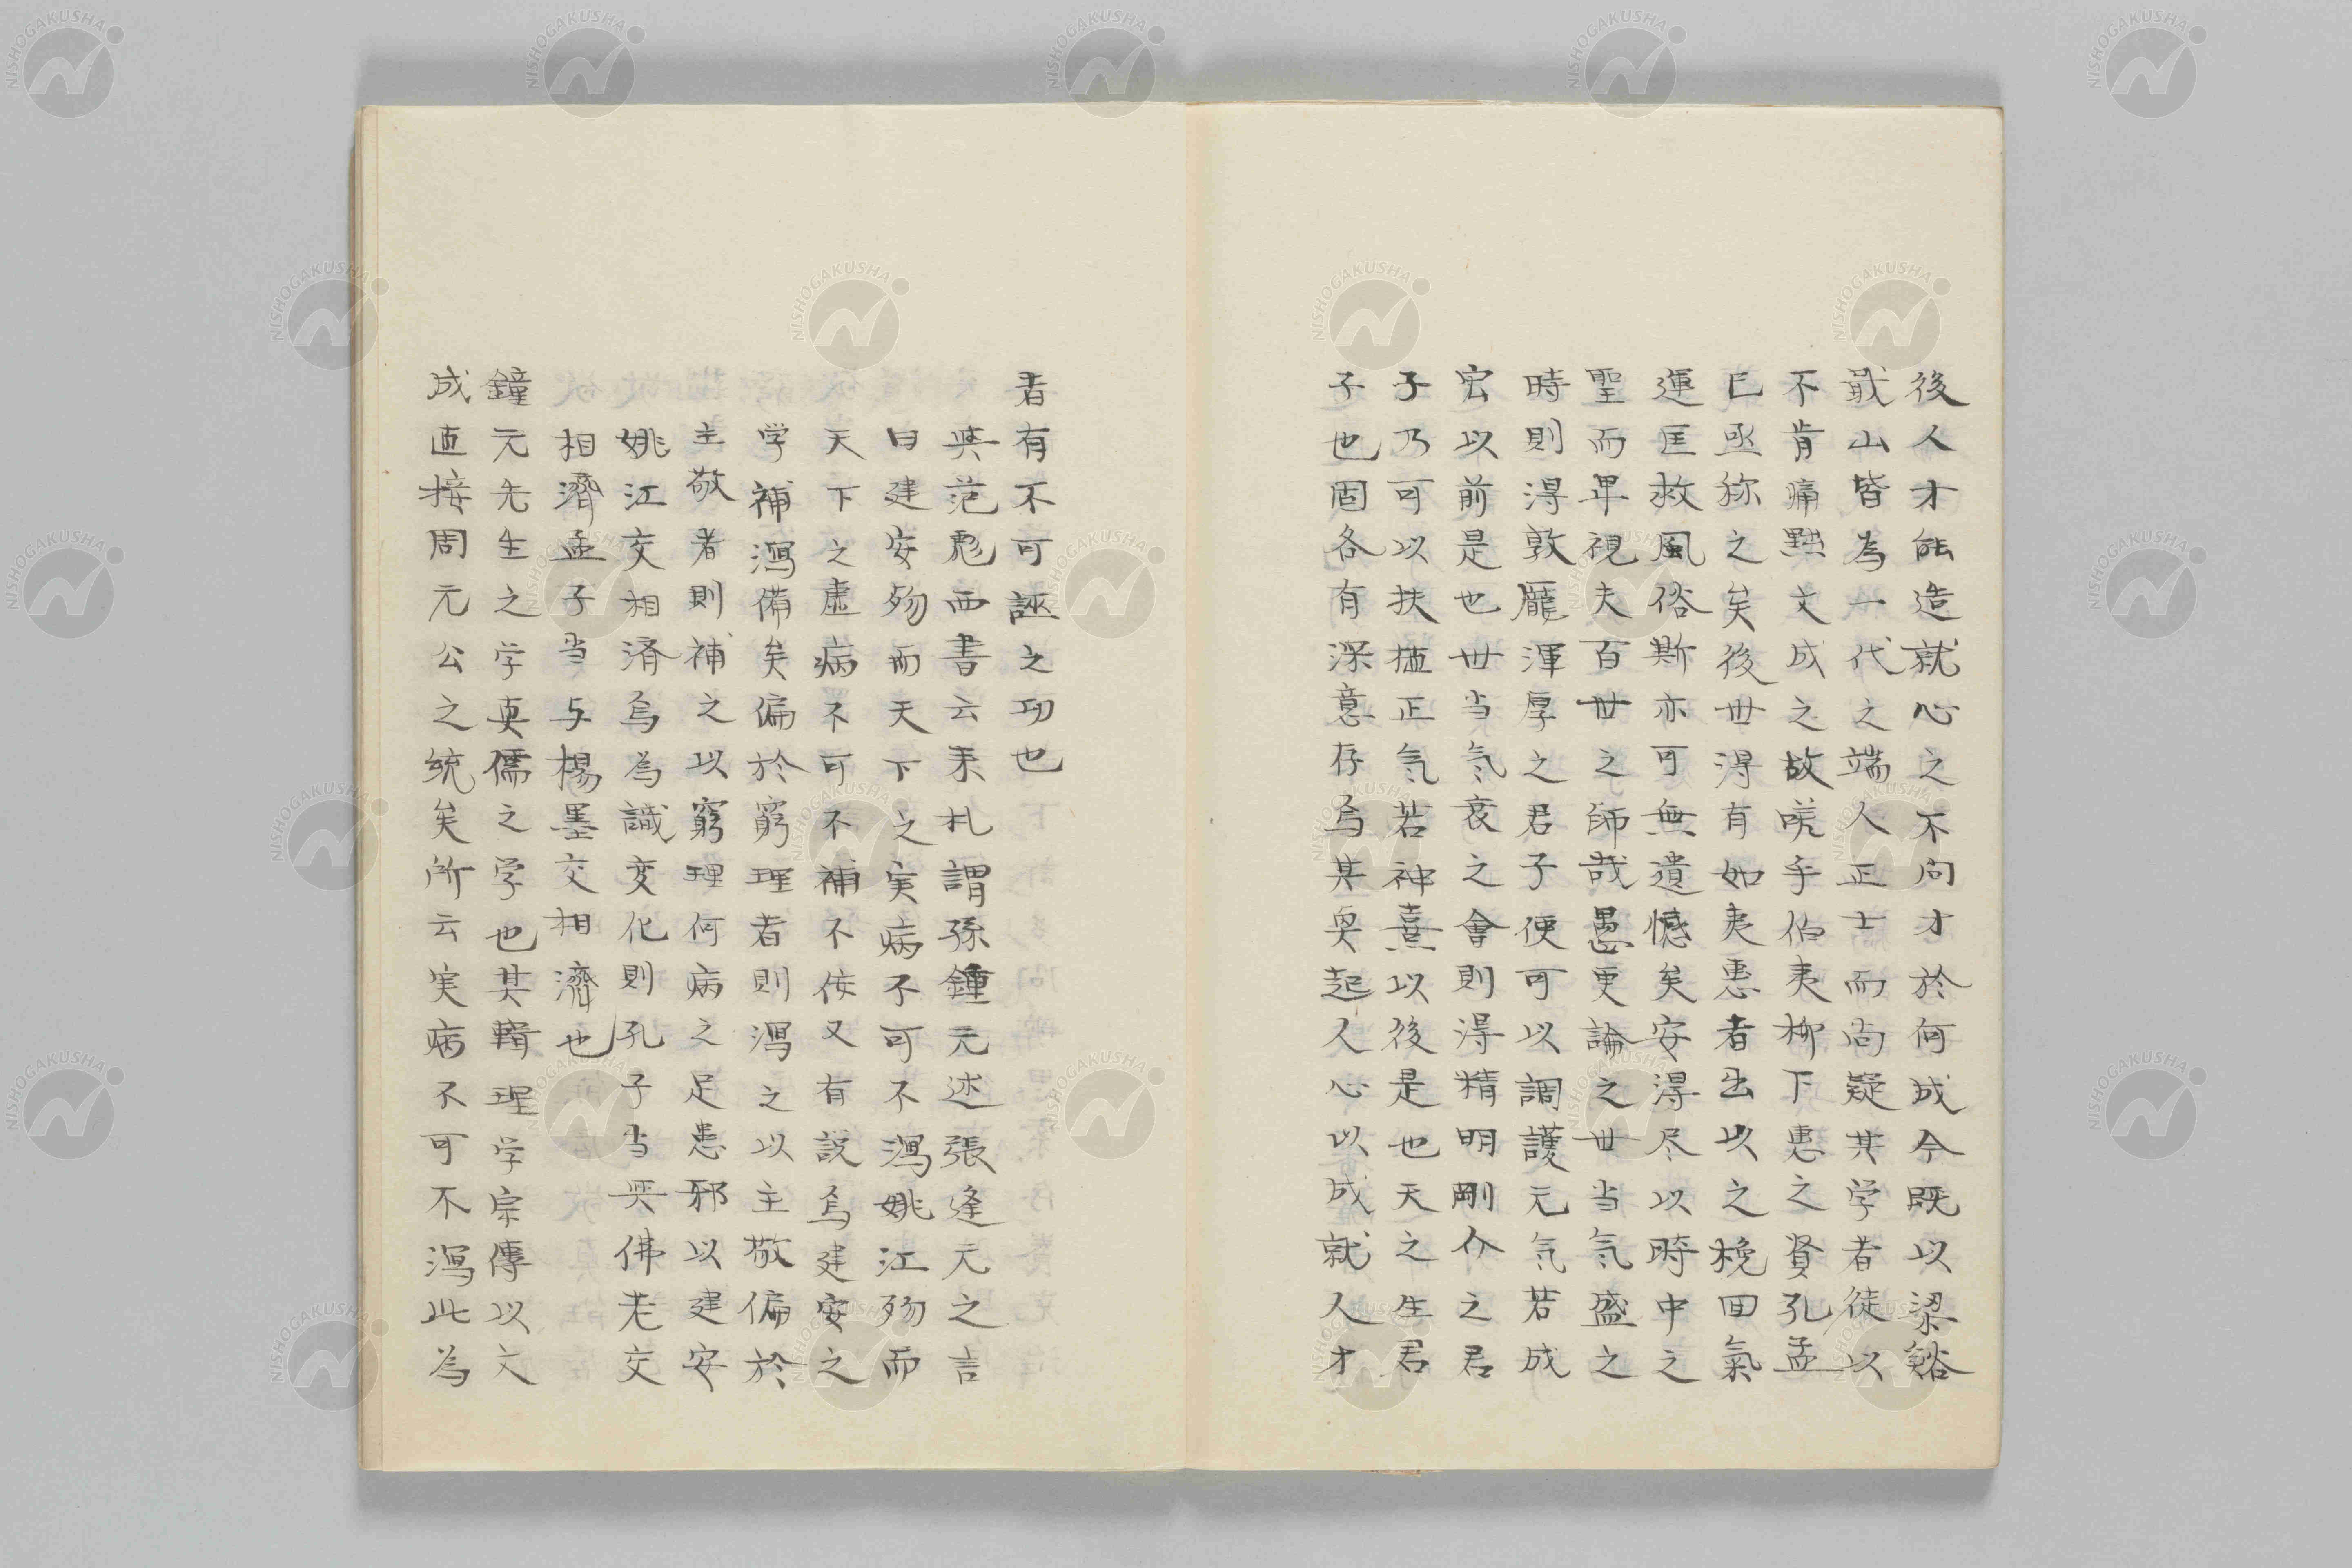 後人才能造就心之不同才於何成今既以梁谿
蕺山皆為一代之端人正士而尚疑其学者徒以
不肯痛黜文成之故嗟乎伯夷柳下惠之賢孔孟
已亟称之矣後世得有如夷惠者出以之挽回氣
運匡救風俗斯亦可無遺憾矣安得尽以時中之
聖而卑視夫百世之師哉愚更論之世当気盛之
時則得敦龐渾厚之君子便可以調護元気若成
宏以前是也世当気衰之會則得精明剛介之君
子乃可以扶植正気若神熹以後是也天之生君
子也固各有深意存焉其與起人心以成就人才
者有不可誣之功也
與范彪西書云来札謂孫鍾元述張逢元之言
曰建安歾而天下之実病不可不瀉姚江歾而
天下之虚病不可不補不佞又有説焉建安之
学補瀉備矣偏於窮理者則瀉之以主敬偏於
主敬者則補之以窮理何病之足患邪以建安
姚江交相済焉為識変化則孔子当與佛老交
相濟孟子当与楊墨交相濟也
鐘元先生之学真儒之学也其輯理学宗傳以文
成直接周元公之統矣所云実病不可不瀉此為
NISHOGAKUSHA